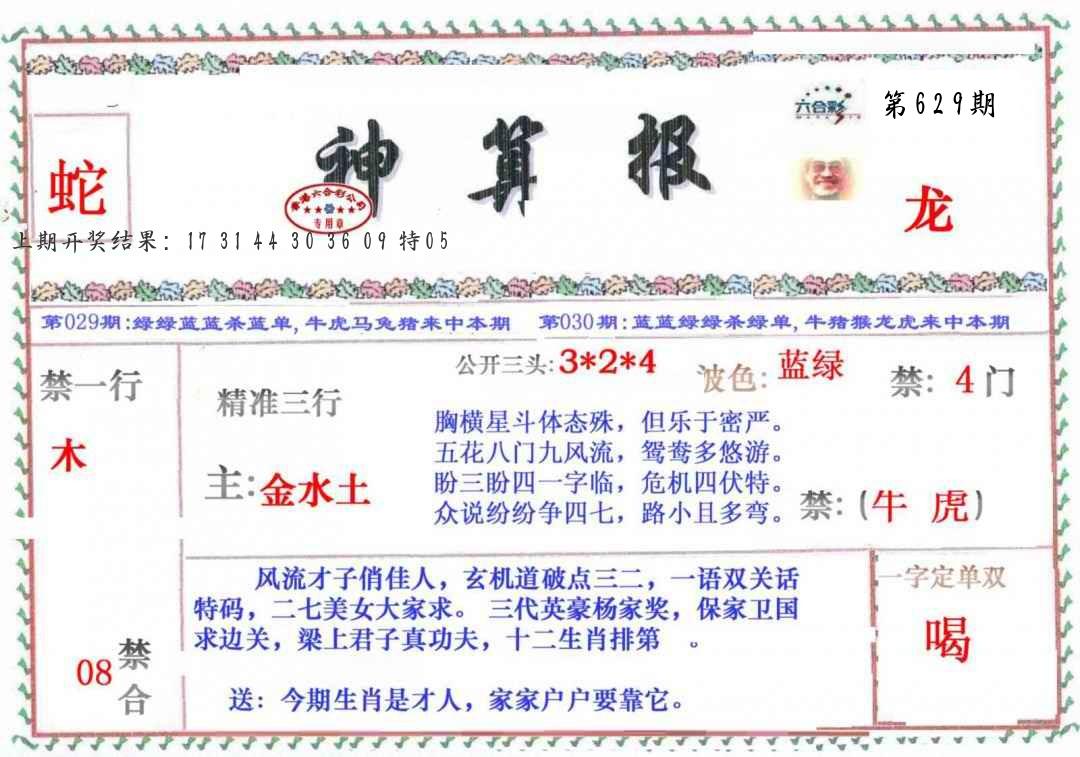 六合彩
第629期
蛇
神算报
龙
香港六合彩公司
专用章
上期开奖结果: 17 31 44 30 36 09 特05
第029期:绿绿蓝蓝杀蓝单,牛虎马兔猪来中本期 第030期:蓝蓝绿绿杀绿单,牛猪猴龙虎来中本期
禁一行
木
精准三行
主:金水土
公开三头:3*2*4
波色:蓝绿
禁: 4门
胸横星斗体态殊，但乐于密严。
五花八门九风流，鸳鸯多悠游。
盼三盼四一字临，危机四伏特。
众说纷纷争四七，路小且多弯。
禁:(牛 虎)
08
禁合
风流才子俏佳人，玄机道破点三二，一语双关话
特码，二七美女大家求。 三代英豪杨家奖，保家卫国
求边关，梁上君子真功夫，十二生肖排第 。
送：今期生肖是才人，家家户户要靠它。
一字定单双
喝